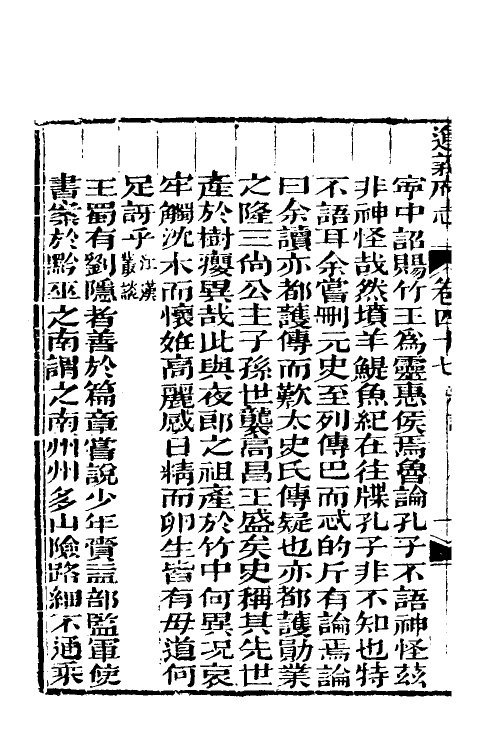 遵義府志 卷四十七
寧中詔賜竹王為靈惠侯焉魯論孔子不語神怪茲
非神怪哉然墳羊鯷魚紀在往牒孔子非不知也特
不語耳余嘗刪元史至列傳巴而忒的斤有論焉論
曰余讀亦都護傳而歎太史氏傳疑也亦都護勛業
之隆三尚公主子孫世襲高昌王盛矣史稱其先世
產於樹癭異哉此與夜郎之祖產於竹中何異況哀
牢觸沈木而懷姙高麗感日精而卵生皆有毋道何
足訝乎江漢叢談
王蜀有劉隱者善於篇章嘗說少年賫益部監軍使
書案於黔巫之南謂之南州州多山險路細不通乘